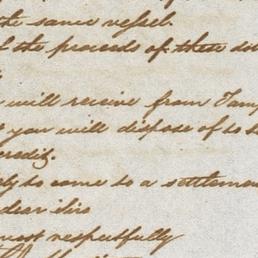 the same vessel.
of the proceeds of these
will receive from
you will dispose of to
credit.
to come to a settlemen
dear sirs
most respectfully